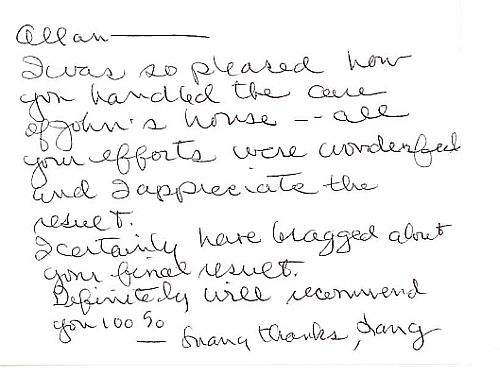 Allan——
I was so pleased how
you handled the care
of John's house -- all
your efforts were wonderful
and I appreciate the
result.
I certainly have bragged about
your final result.
Definitely will recommend
you 100%
— many thanks,